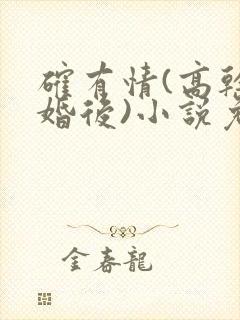 確有情(高幹
婚後)小說免
金春龍